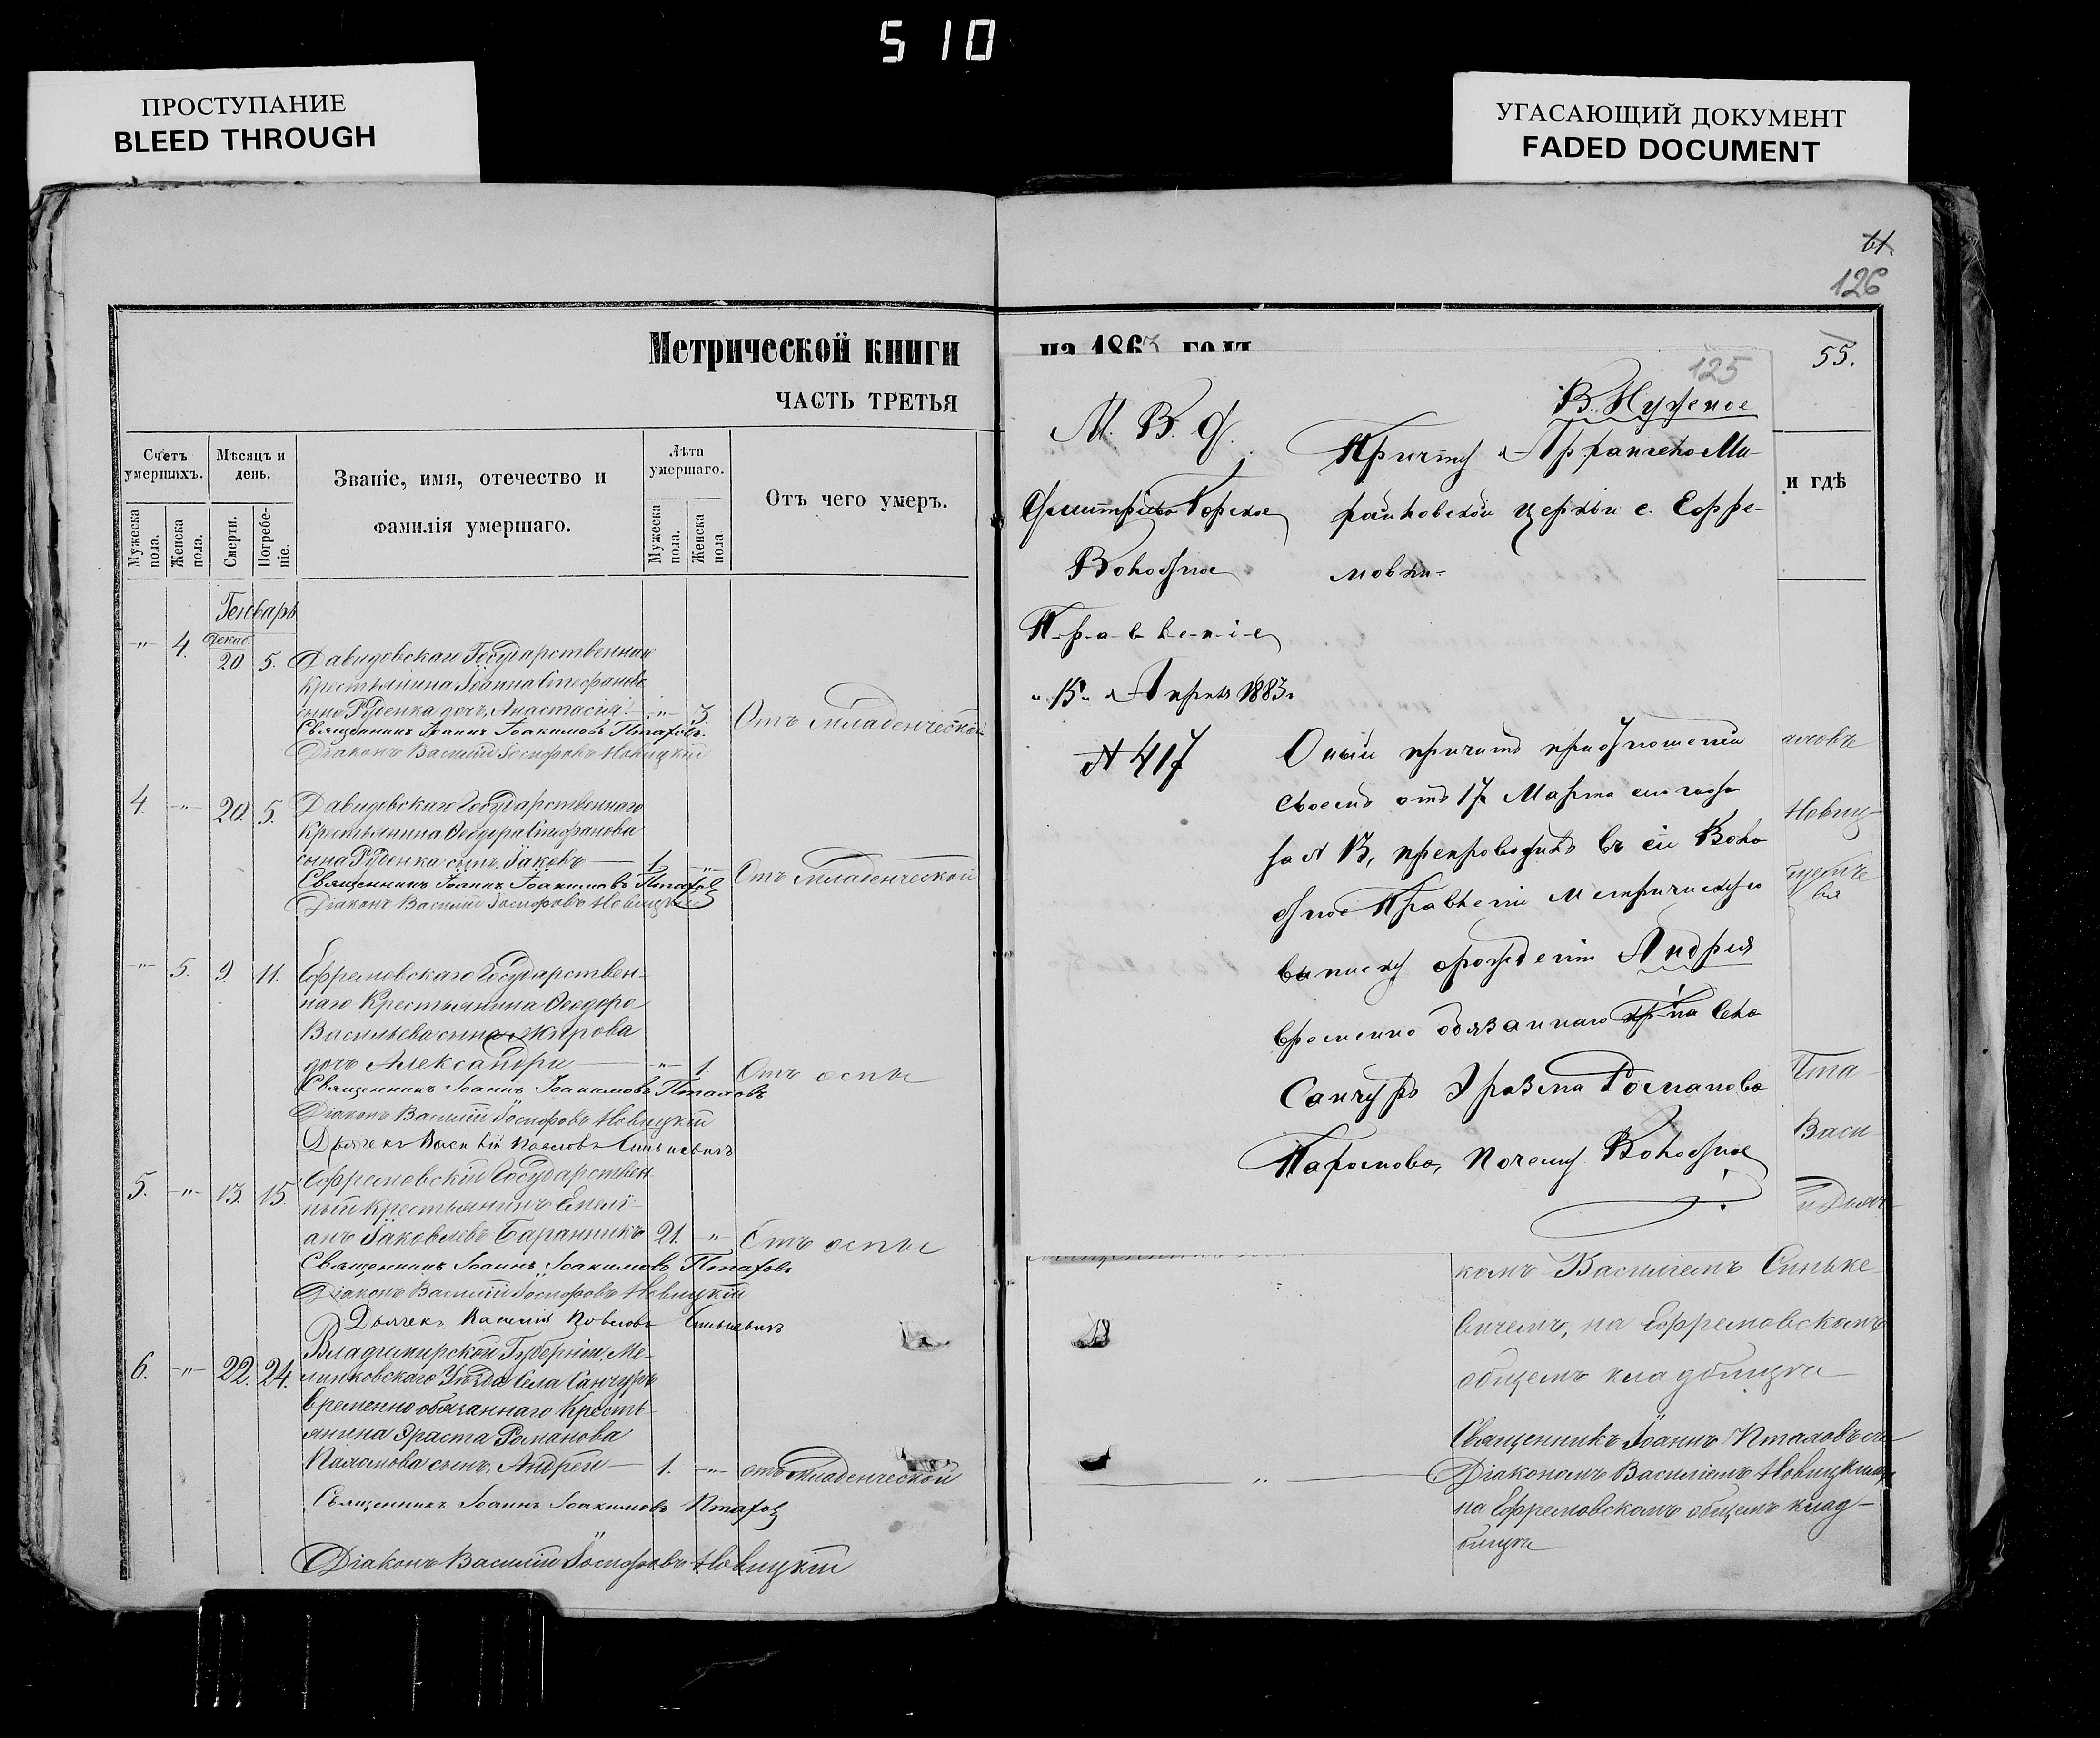 510
ПРОСТУПАНИЕ
BLEED THROUGH
УГАСАЮЩИЙ ДОКУМЕНТ
FADED DOCUMENT
126
Метрической книги
ЧАСТЬ ТРЕТЬЯ
Счетъ умершихъ.
Мѣсяцъ и день.
Званіе, имя, отечество и
фамилія умершаго.
Лѣта умершаго.
Отъ чего умеръ.
Мужеска пола.
Женска пола.
Смерти.
Погребеніе.
Мужеска пола.
Женска пола
Генварь
-"- 4. Декаб. 20 5. Давидовскаго Государственнаго
Крестьянина Іоанна Стефанова
сына Руденка дочь, Анастасія -"- 3. Отъ младенческой
Священникъ Іоаннъ Іоакимовъ Птаховъ
Діаконъ Василій Іосифовъ Новицкій
4. -"- 20. 5. Давидовскаго Государственнаго
Крестьянина Ѳеодора Стефанова
сына Руденка сынъ, Іаковъ 1. -"- Отъ младенческой
Священникъ Іоаннъ Іоакимовъ Птахов
Діаконъ Василій Іосифовъ Новицкій
-"- 5. 9. 11. Ефремовскаго Государствен-
наго Крестьянина Ѳеодора
Васильева сына
дочь Александра -"- 1. Отъ оспы
Священникъ Іоаннъ Іоакимовъ Птаховъ
Діаконъ Василій Іосифовъ Новицкій
Дьячекъ Василій Павловъ Синькевичъ
5. -"- 13. 15. Ефремовскій Государствен-
ный крестьянинъ Емелі-
анъ Іаковлевъ Баранникъ 21. -"- Отъ оспы
Священникъ Іоаннъ Іоакимовъ Птаховъ
Діаконъ Василій Іосифовъ Новицкій
Дьячекъ Василій Павловъ Синькевичъ
6. -"- 22. 24. Владимирской Губерніи, Ме-
ленковскаго Уѣзда Села Санчуръ
временно обязаннаго Кресть-
янина Эраста Романова
сынъ, Андрей 1. -"- отъ младенческой
Священникъ Іоаннъ Іоакимовъ Птахов
Діаконъ Василій Іосифовъ Новицкій
на 1863 годъ
125
55.
и гдѣ
В. Нужное
М. В. Д.
Дмитріево Горское
Волостное
П-р-а-в-л-е-н-і-е
"15" Апрѣля 1883 г
№ 417
Причту Архангело Ми-
хайловской церкви с. Ефре-
мовки-
Оный причтъ при отношеніи
своемъ отъ 17 Марта сего года
за № 13, препроводилъ въ сіе Воло
стное Правленіе Метрическую
выписку о рожденіи Андрея
временно обязаннаго кр-на Села
Санчуръ Эразма Романова
Почему Волостное
аховъ
Новиц-
Пта-
Васи-
и Дьяч-
комъ Василіемъ Синьке-
вичемъ, на Ефремовскомъ
общемъ кладбищѣ
Священникъ Іоаннъ Птаховъ съ
Діакономъ Василіемъ Новицкимъ
на Ефремовскомъ общемъ клад-
бищѣ